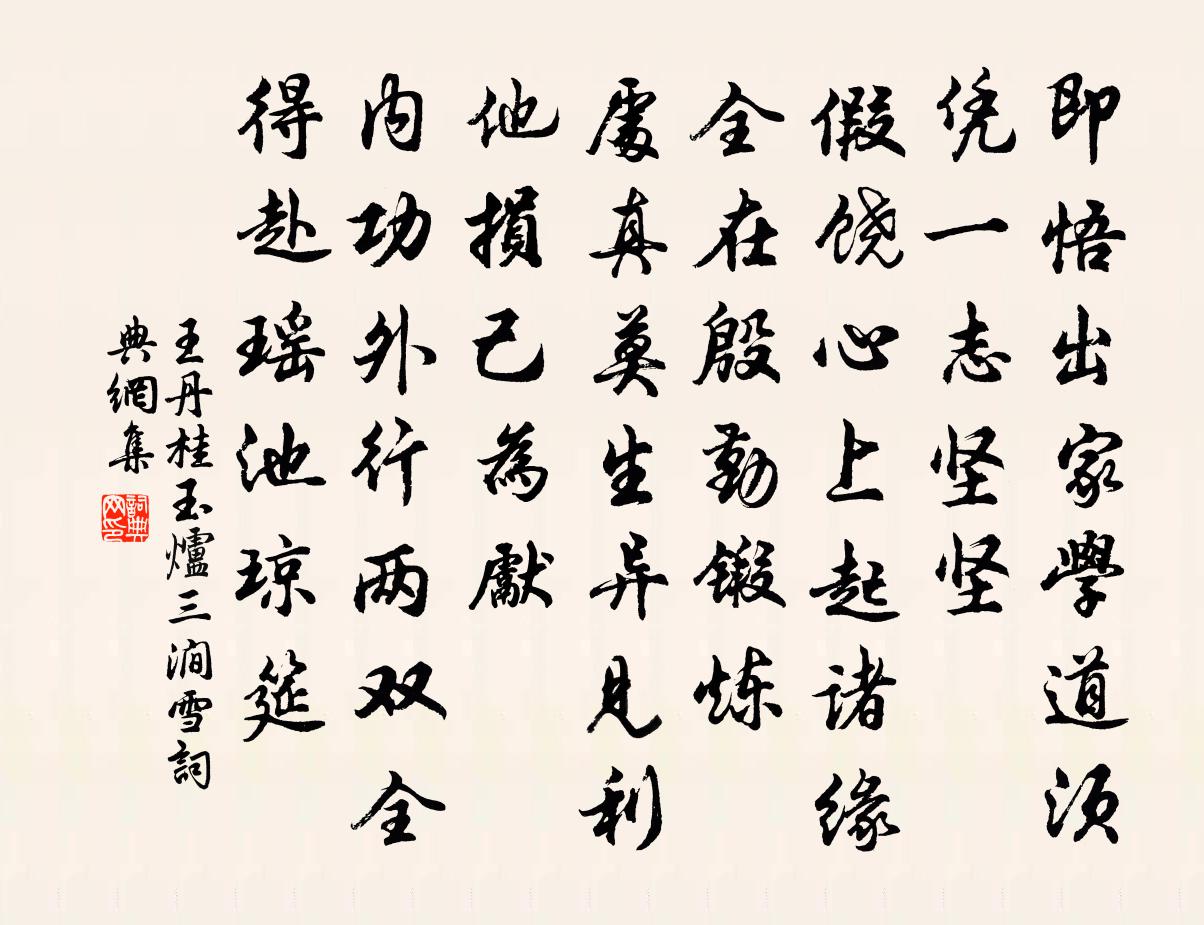 即悟出家學道须
凭一志坚坚
假饶心上起诸缘
全在殷勤鍛炼
處真莫生异见利
他損己為獻
内功外行两双全
得赴瑶池琼筵
王丹桂玉爐三澗雪詞
典網集
詞典网印